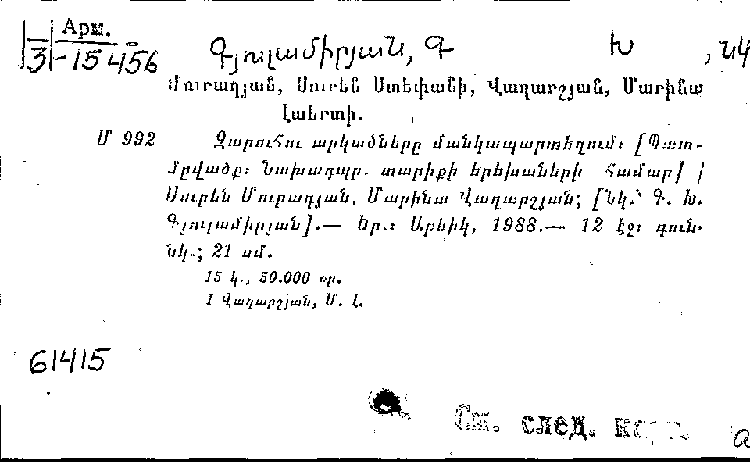 Арм.
3-15456
Գյուլամիրյան, Գ Խ , նկ
Մուրադյան, Սուրեն Ստեփանի, Վաղարշյան, Մարինա
Լաերտի.
Մ 992 Զարուհու արկածները մանկապարտեզում: [Պատ-
մըվածք: Նախադպր. տարիքի երեխաների համար] /
Սուրեն Մուրադյան, Մարինա Վաղարշյան; [Նկ.՝ Գ. Խ.
Գյուլամիրյան].— Եր.: Արևիկ, 1988.— 12 էջ: գուն.
նկ.; 21 սմ.
15 կ., 50.000 օր.
I Վաղարշյան, Մ. Լ.
61415
См. след.